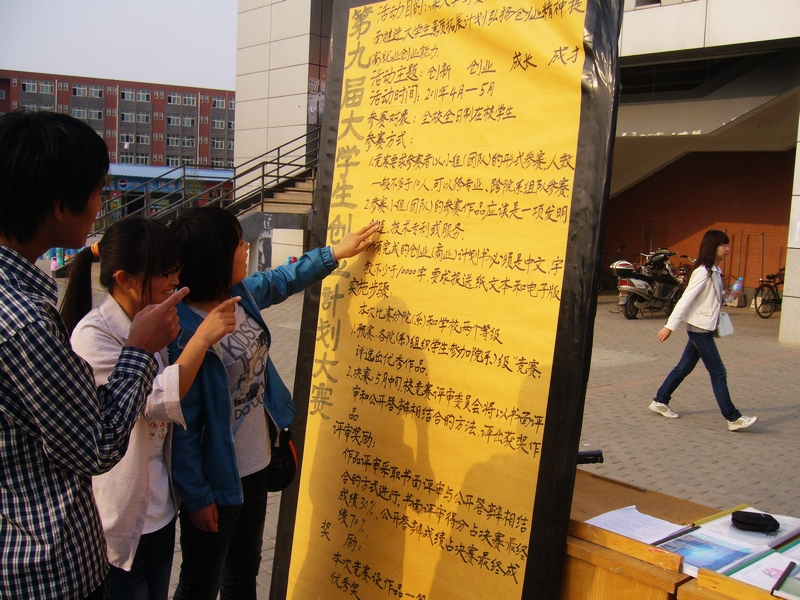 第九届大学生创业计划大赛
活动目的:深入学习
面推进大学生素质拓展计划弘扬创业精神提
高就业创业能力
活动主题:创新 创业 成长 成才
活动时间:2011年4月—5月
参赛对象:全校全日制在校学生
参赛方式:
1.竞赛要求参赛者以小组(团队)的形式参赛,人数
一般不多于10人,可以跨专业、跨院系组队参赛
2.参赛小组(团队)的参赛作品应该是一项发明
技术专利或服务.
须完成的创业(商业)计划书必须是中文,字
数不少于10000字,要求报送纸文本和电子版
实施步骤
本次比赛分院(系)和学校两个等级
1.预赛:各院(系)组织学生参加院(系)级"竞赛,
评选出优秀作品.
2.决赛:5月中旬,校竞赛评审委员会将以书面评
审和公开答辩相结合的方法,评出获奖作
品
评审奖励:
作品评审采取书面评审与公开答辩相结
合的方式进行,书面评审得分占决赛最终
成绩30%,公开答辩成绩占决赛最终成
绩70%
奖 励:
本次竞赛设作品一等
优秀奖
KISS